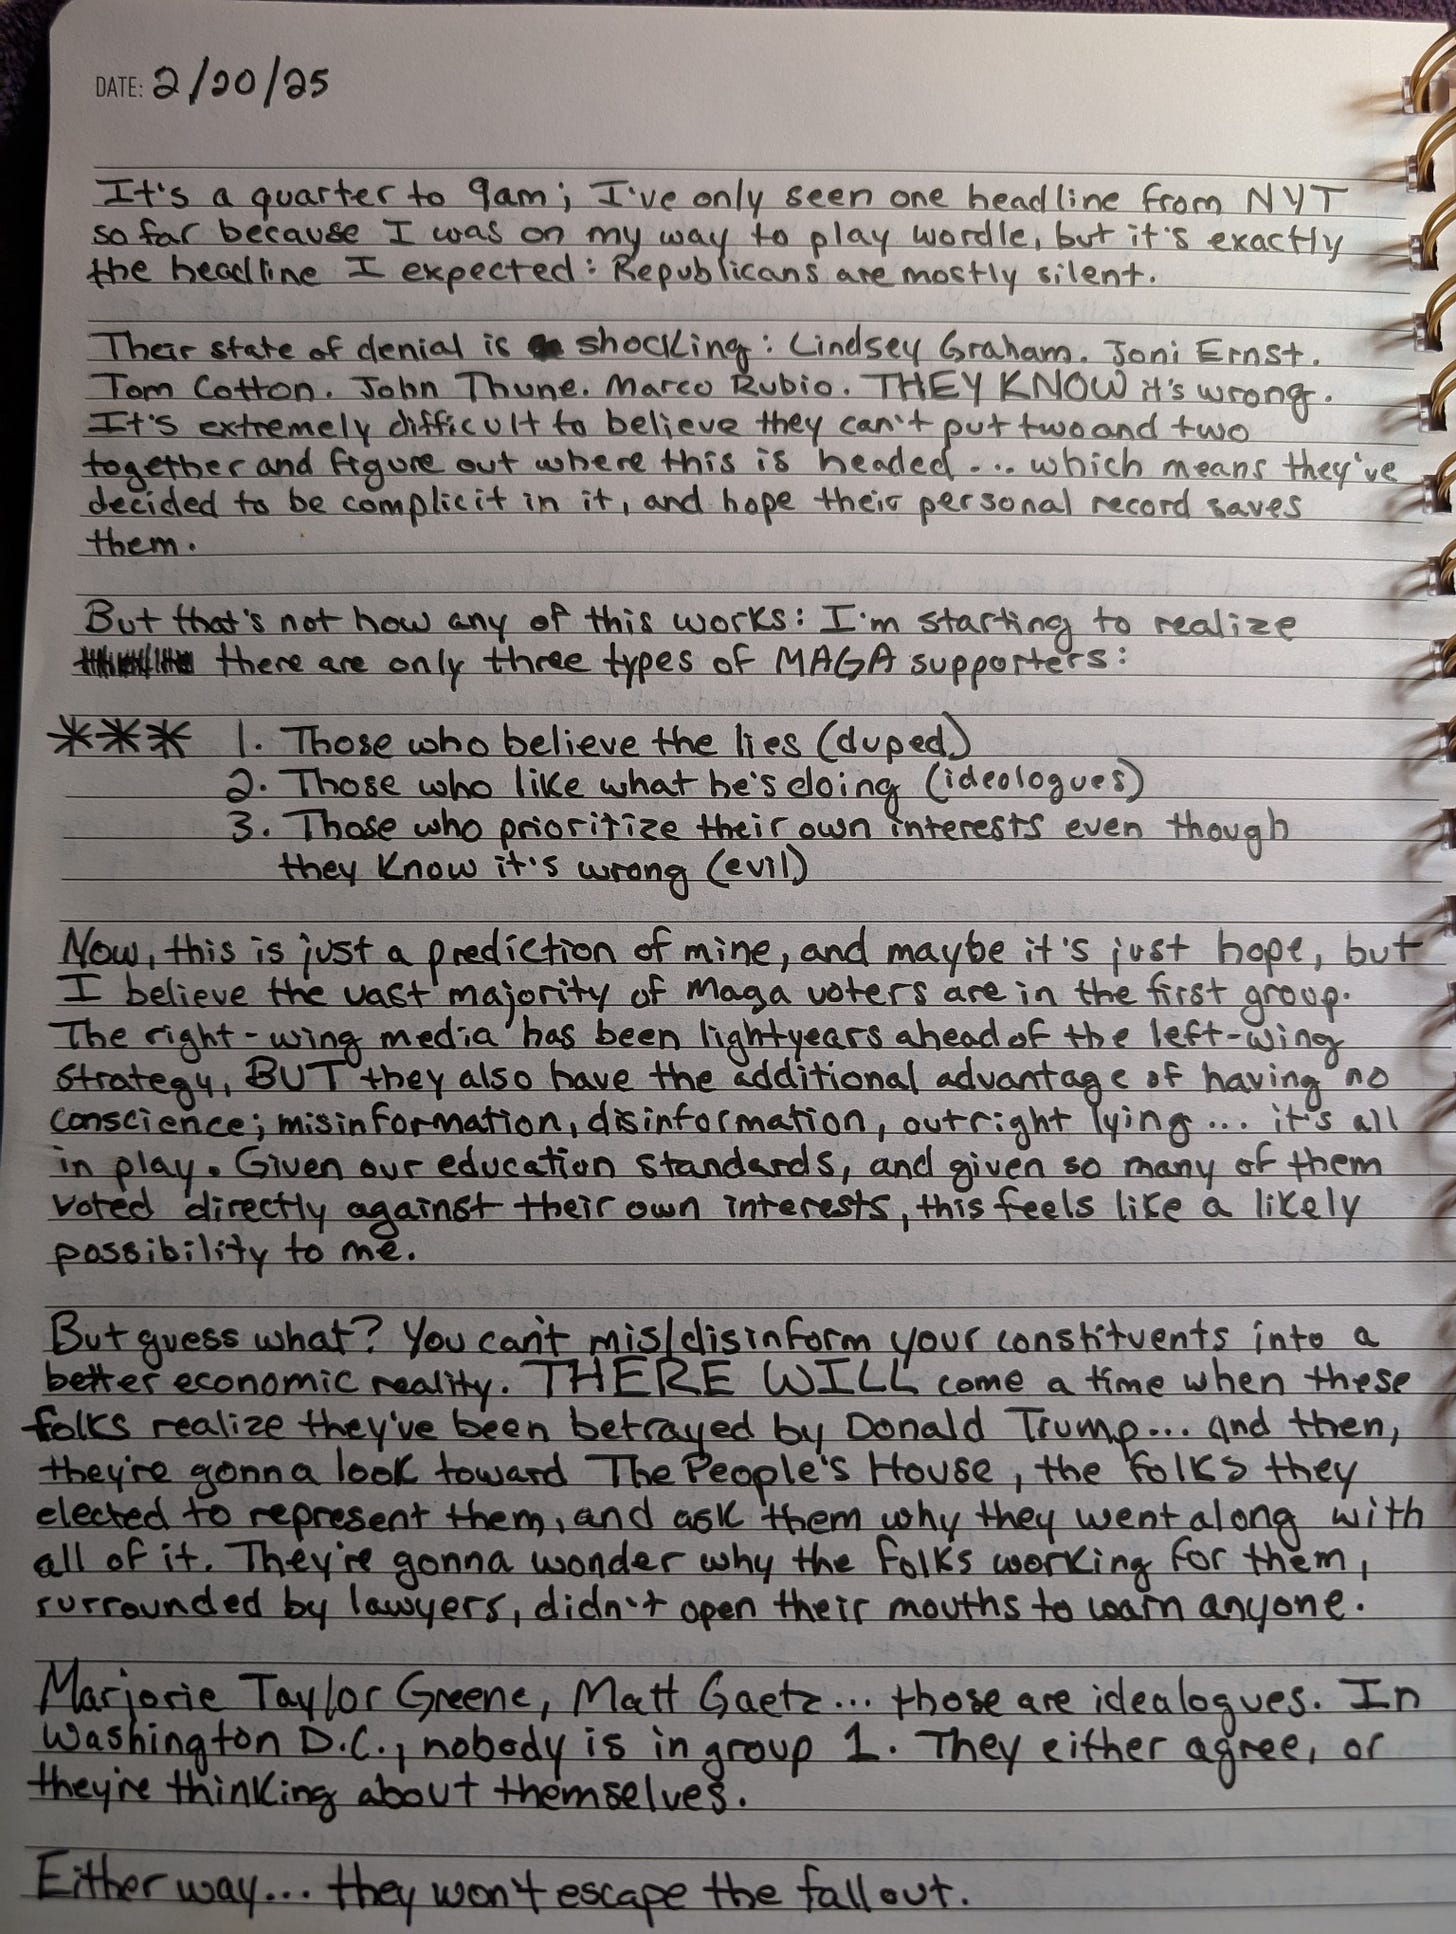 DATE: 2/20/25
It's a quarter to 9am; I've only seen one headline from NYT
so far because I was on my way to play wordle, but it's exactly
the headline I expected: Republicans are mostly silent.
Their state of denial is shocking: Lindsey Graham. Joni Ernst.
Tom Cotton. John Thune. Marco Rubio. THEY KNOW it's wrong.
It's extremely difficult to believe they can't put two and two
together and figure out where this is headed... which means they've
decided to be complicit in it, and hope their personal record saves
them.
But that's not how any of this works: I'm starting to realize
there are only three types of MAGA supporters:
*** 1. Those who believe the lies (duped)
2. Those who like what he's doing (ideologues)
3. Those who prioritize their own interests even though
they know it's wrong (evil)
Now, this is just a prediction of mine, and maybe it's just hope, but
I believe the vast majority of maga voters are in the first group.
The right-wing media has been lightyears ahead of the left-wing
strategy, BUT they also have the additional advantage of having no
conscience; misinformation, disinformation, outright lying... it's all
in play. Given our education standards, and given so many of them
voted directly against their own interests, this feels like a likely
possibility to me.
But guess what? You can't mis/disinform your constituents into a
better economic reality. THERE WILL come a time when these
folks realize they've been betrayed by Donald Trump... and then,
they're gonna look toward The People's House, the folks they
elected to represent them, and ask them why they went along with
all of it. They're gonna wonder why the folks working for them,
surrounded by lawyers, didn't open their mouths to warn anyone.
Marjorie Taylor Greene, Matt Gaetz... those are idealogues. In
Washington D.C., nobody is in group 1. They either agree, or
they're thinking about themselves.
Either way... they won't escape the fallout.